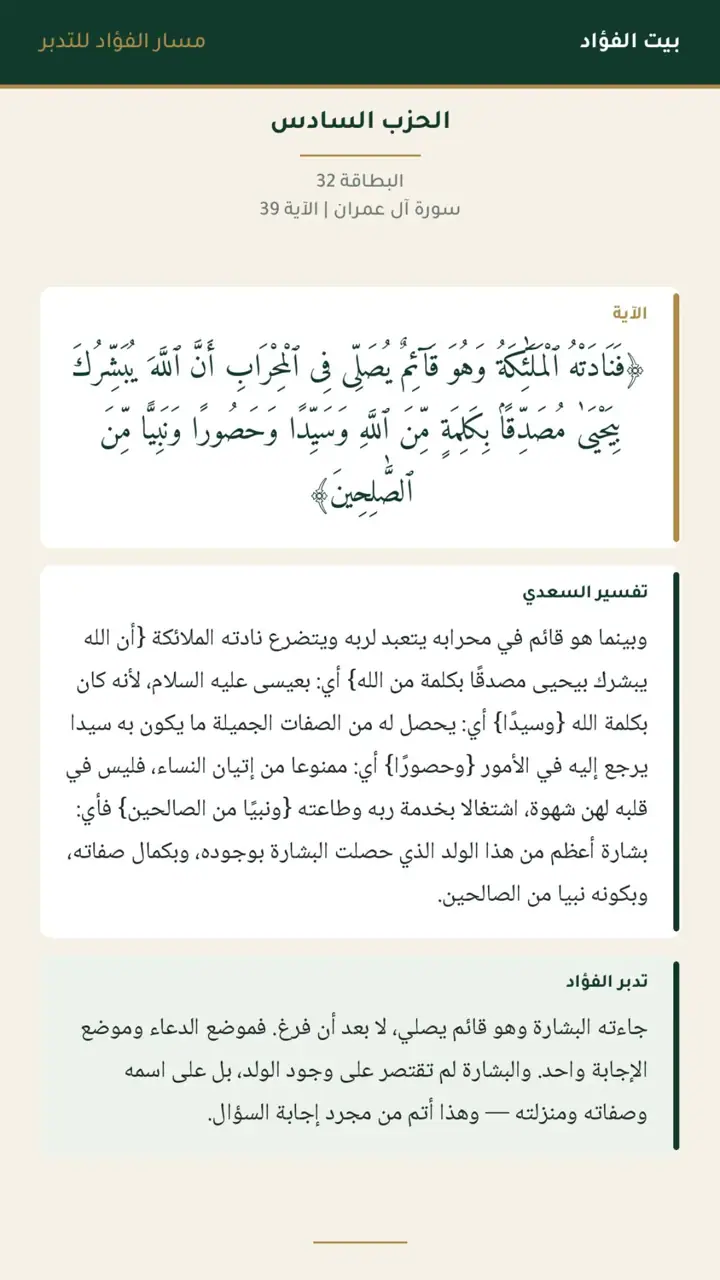 بيت الفؤاد
مسار الفؤاد للتدبر
الحزب السادس
البطاقة 32
سورة آل عمران | الآية 39
الآية
﴿فَنَادَتْهُ ٱلْمَلَٰٓئِكَةُ وَهُوَ قَآئِمٌ يُصَلِّى فِى ٱلْمِحْرَابِ أَنَّ ٱللَّهَ يُبَشِّرُكَ
بِيَحْيَىٰ مُصَدِّقًۢا بِكَلِمَةٍ مِّنَ ٱللَّهِ وَسَيِّدًا وَحَصُورًا وَنَبِيًّا مِّنَ
ٱلصَّٰلِحِينَ﴾
تفسير السعدي
وبينما هو قائم في محرابه يتعبد لربه ويتضرع نادته الملائكة {أن الله
يبشرك بيحيى مصدقًا بكلمة من الله} أي: بعيسى عليه السلام، لأنه كان
بكلمة الله {وسيدًا} أي: يحصل له من الصفات الجميلة ما يكون به سيدا
يرجع إليه في الأمور {وحصورًا} أي: ممنوعا من إتيان النساء، فليس في
قلبه لهن شهوة، اشتغالا بخدمة ربه وطاعته {ونبيًا من الصالحين} فأي:
بشارة أعظم من هذا الولد الذي حصلت البشارة بوجوده، وبكمال صفاته،
وبكونه نبيا من الصالحين.
تدبر الفؤاد
جاءته البشارة وهو قائم يصلي، لا بعد أن فرغ. فموضع الدعاء وموضع
الإجابة واحد. والبشارة لم تقتصر على وجود الولد، بل على اسمه
وصفاته ومنزلته — وهذا أتم من مجرد إجابة السؤال.